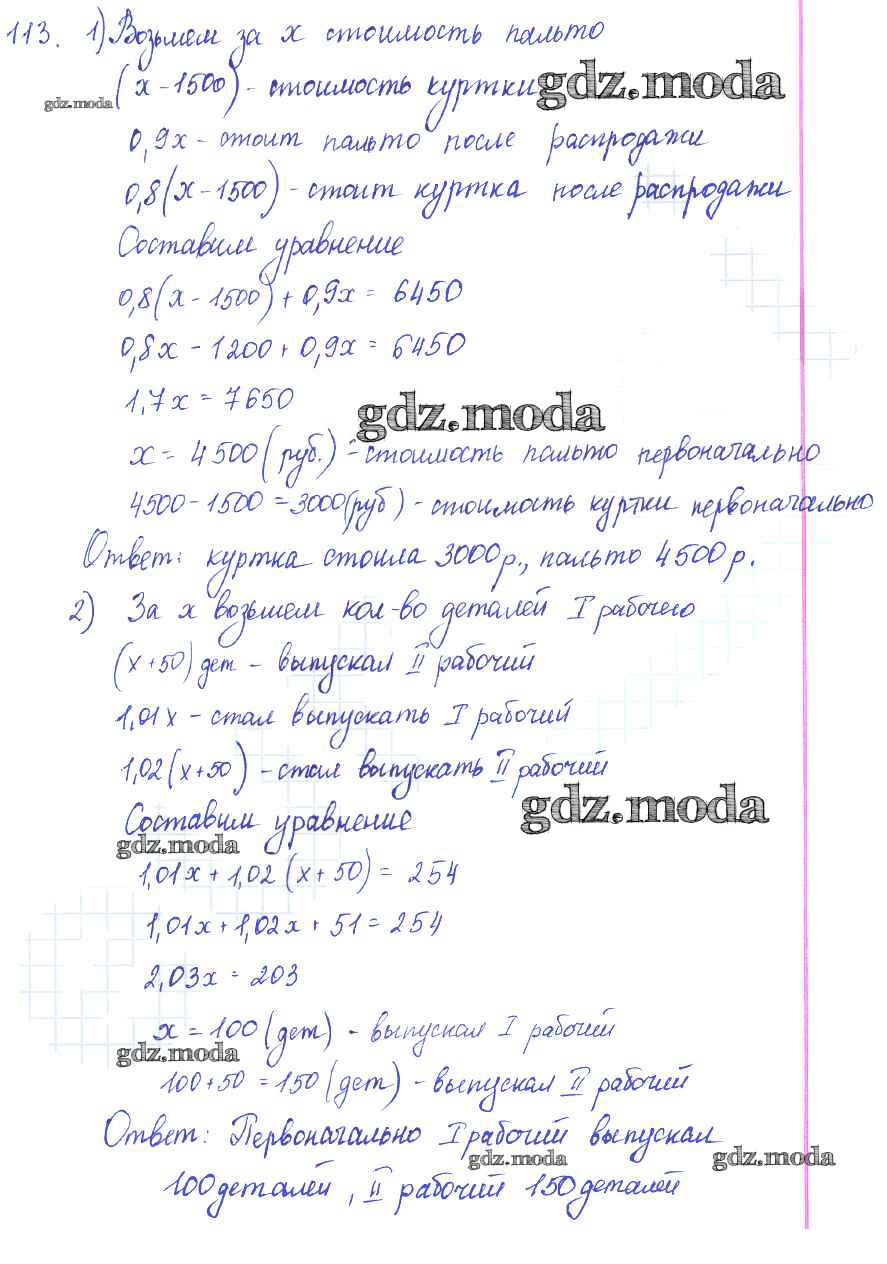 113. 1) Возьмем за x стоимость пальто
(x-1500) - стоимость куртки gdz.moda
gdz.moda
0,9x - стоит пальто после распродажи
0,8(x-1500) - стоит куртка после распродажи
Составим уравнение
0,8(x-1500)+0,9x = 6450
0,8x - 1200 + 0,9x = 6450
1,7x = 7650
gdz.moda
x = 4500 (руб.) - стоимость пальто первоначально
4500-1500 =3000(руб) - стоимость куртки первоначально
Ответ: куртка стоила 3000р., пальто 4500р.
2) За x возьмем кол-во деталей I рабочего
(x+50) дет - выпускал II рабочий
1,01x - стал выпускать I рабочий
1,02(x+50) - стал выпускать II рабочий
gdz.moda
Составим уравнение
gdz.moda
1,01x + 1,02 (x+50) = 254
1,01x+1,02x + 51 = 254
2,03x = 203
x = 100 (дет) - выпускал I рабочий
gdz.moda
100+50 = 150 (дет) - выпускал II рабочий
Ответ: Первоначально I рабочий выпускал
gdz.moda gdz.moda
100 деталей, II рабочий 150 деталей